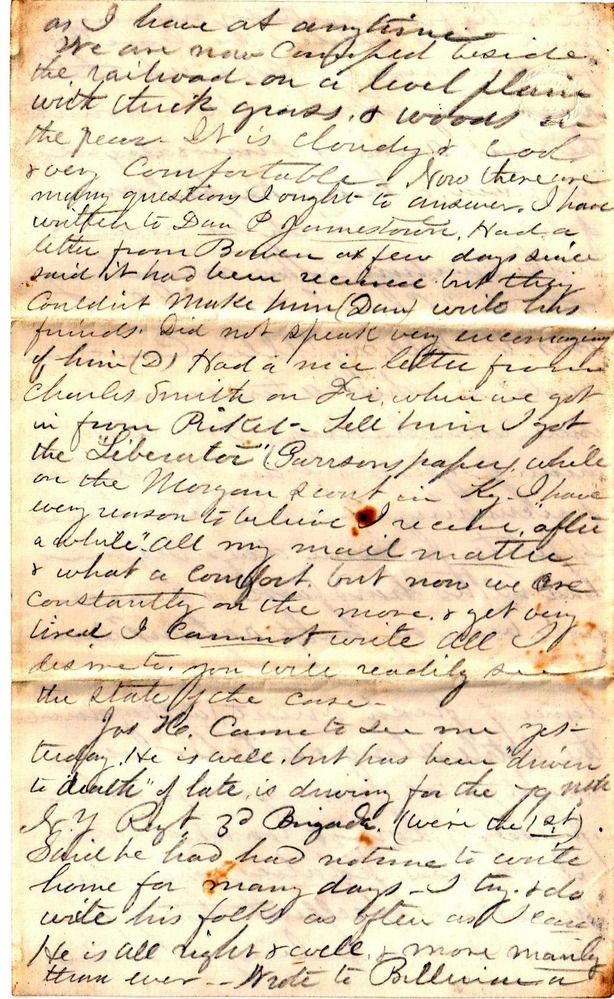 as I have at anytime
We are now Camped beside
the railroad on a level plain
with thick grass, & woods in
the rear. It is cloudy & cool
& very Comfortable. Now there are
many questions I ought to answer. I have
written to Dan P Jamestown. Had a
letter from Bowen a few days since
said it had been received but they
Couldn't make him (Dan) write his
friends. Did not speak very encouraging
of him (D) Had a nice letter from
Charles Smith on Fri, when we got
in from Picket - Tell him I got
the "Liberator" (Garrisons paper) while
on the Morgan scout in Ky. I have
every reason to believe I receive, "after
a while" all my mail matter
& what a comfort, but now we are
constantly on the move & get very
tired I cannot write all I
desire to. you will readily see
the state of the case -
Jos H. Came to see me yes-
terday. He is well, but has been "driven
to death" of late, is driving for the 79 nth
N. Y Regt 3d Brigade. (we're the 1st).
Said he had had no time to write
home for many days - I try & do
write his folks as often as I can
He is all right & well, & more manly
than ever - Wrote to a